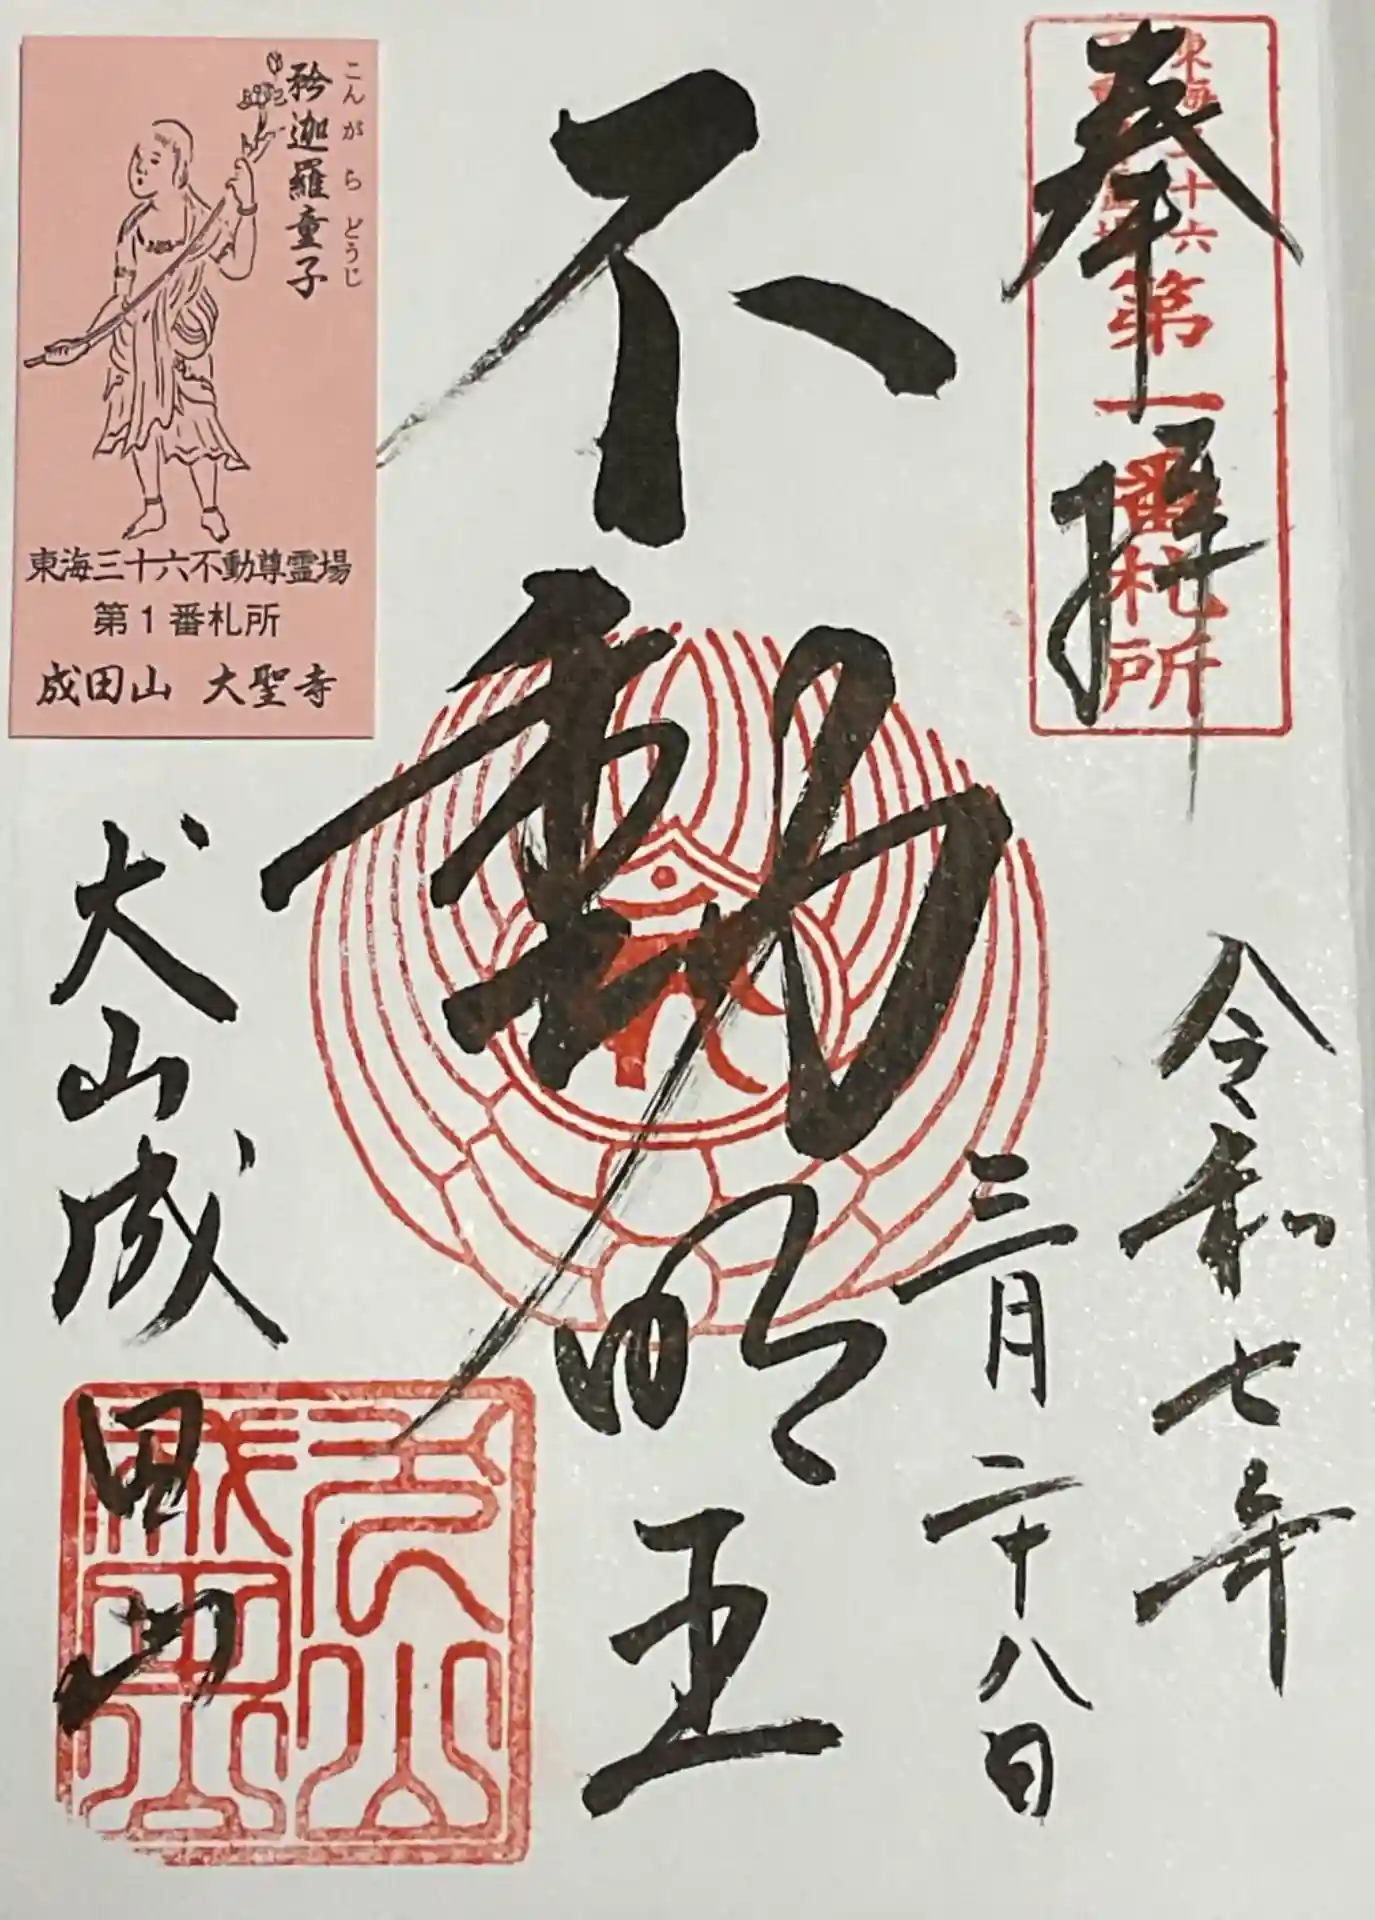 奉拝
東海三十六
不動尊霊場
第一番札所
令和七年
三月二十八日
不動明王
犬山成田山
犬山
成田山
矜迦羅童子
こんがらどうじ
東海三十六不動尊霊場
第1番札所
成田山 大聖寺